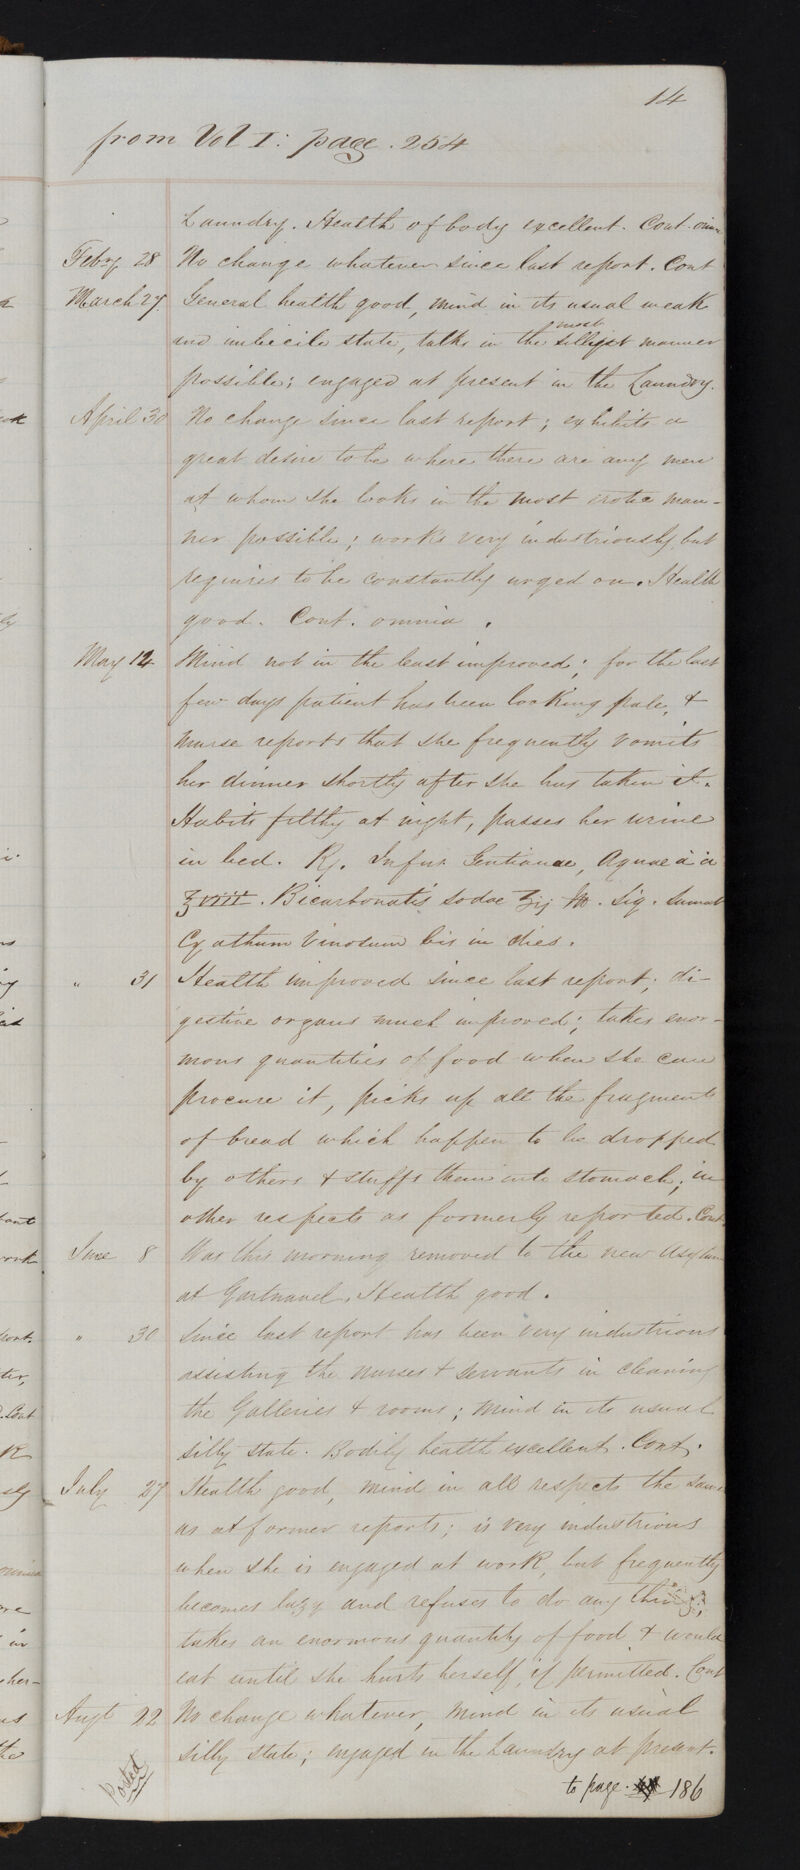 14
from Vol I: page. 254
Laundry. Health of body excellent. Cont. omn
Feby 28 No change whatever since last report. Cont
March 27. General health good, mind in its usual weak
and imbecile state, talks in the most silliest manner
possible; engaged at present in the Laundry.
April 30 No change since last report; exhibits a
great desire to be where there are any men
at whom she looks in the most erotic man-
ner possible; works very industriously, but
requires to be constantly urged on. Health
good. Cont. omnia.
May 12 Mind not in the least improved; for the last
few days patient has been looking pale, &
nurse reports that she frequently vomits
her dinner shortly after she has taken it.
Habits filthy at night, passes her urine
in bed. Rx. Infus Gentianae, Aquae a a
℥viii. Bicarbonatis sodae ʒij M. Sig. Sumat
Cyathum Vinosum bis in dies.
" 31 Health improved since last report; di-
gestive organs much improved; takes enor-
mous quantities of food when she can
procure it, picks up all the fragments
of bread which happen to be dropped
by others & stuffs them into stomach; in
other respects as formerly reported. Cont
June 8 Was this morning removed to the new Asylum
at Gartnavel. Health good.
" 30 Since last report has been very industrious
assisting the nurses & servants in cleaning
the Galleries & rooms; mind in its usual
silly state. Bodily health excellent. Cont.
July 27 Health good, mind in all respects the same
as at former reports; is very industrious
when she is engaged at work, but frequently
becomes lazy and refuses to do any thing;
takes an enormous quantity of food & would
eat until she hurts herself, if permitted. Cont
Augt 22 No change whatever, mind in its usual
silly state; engaged in the Laundry at present.
Posted
to page. 186